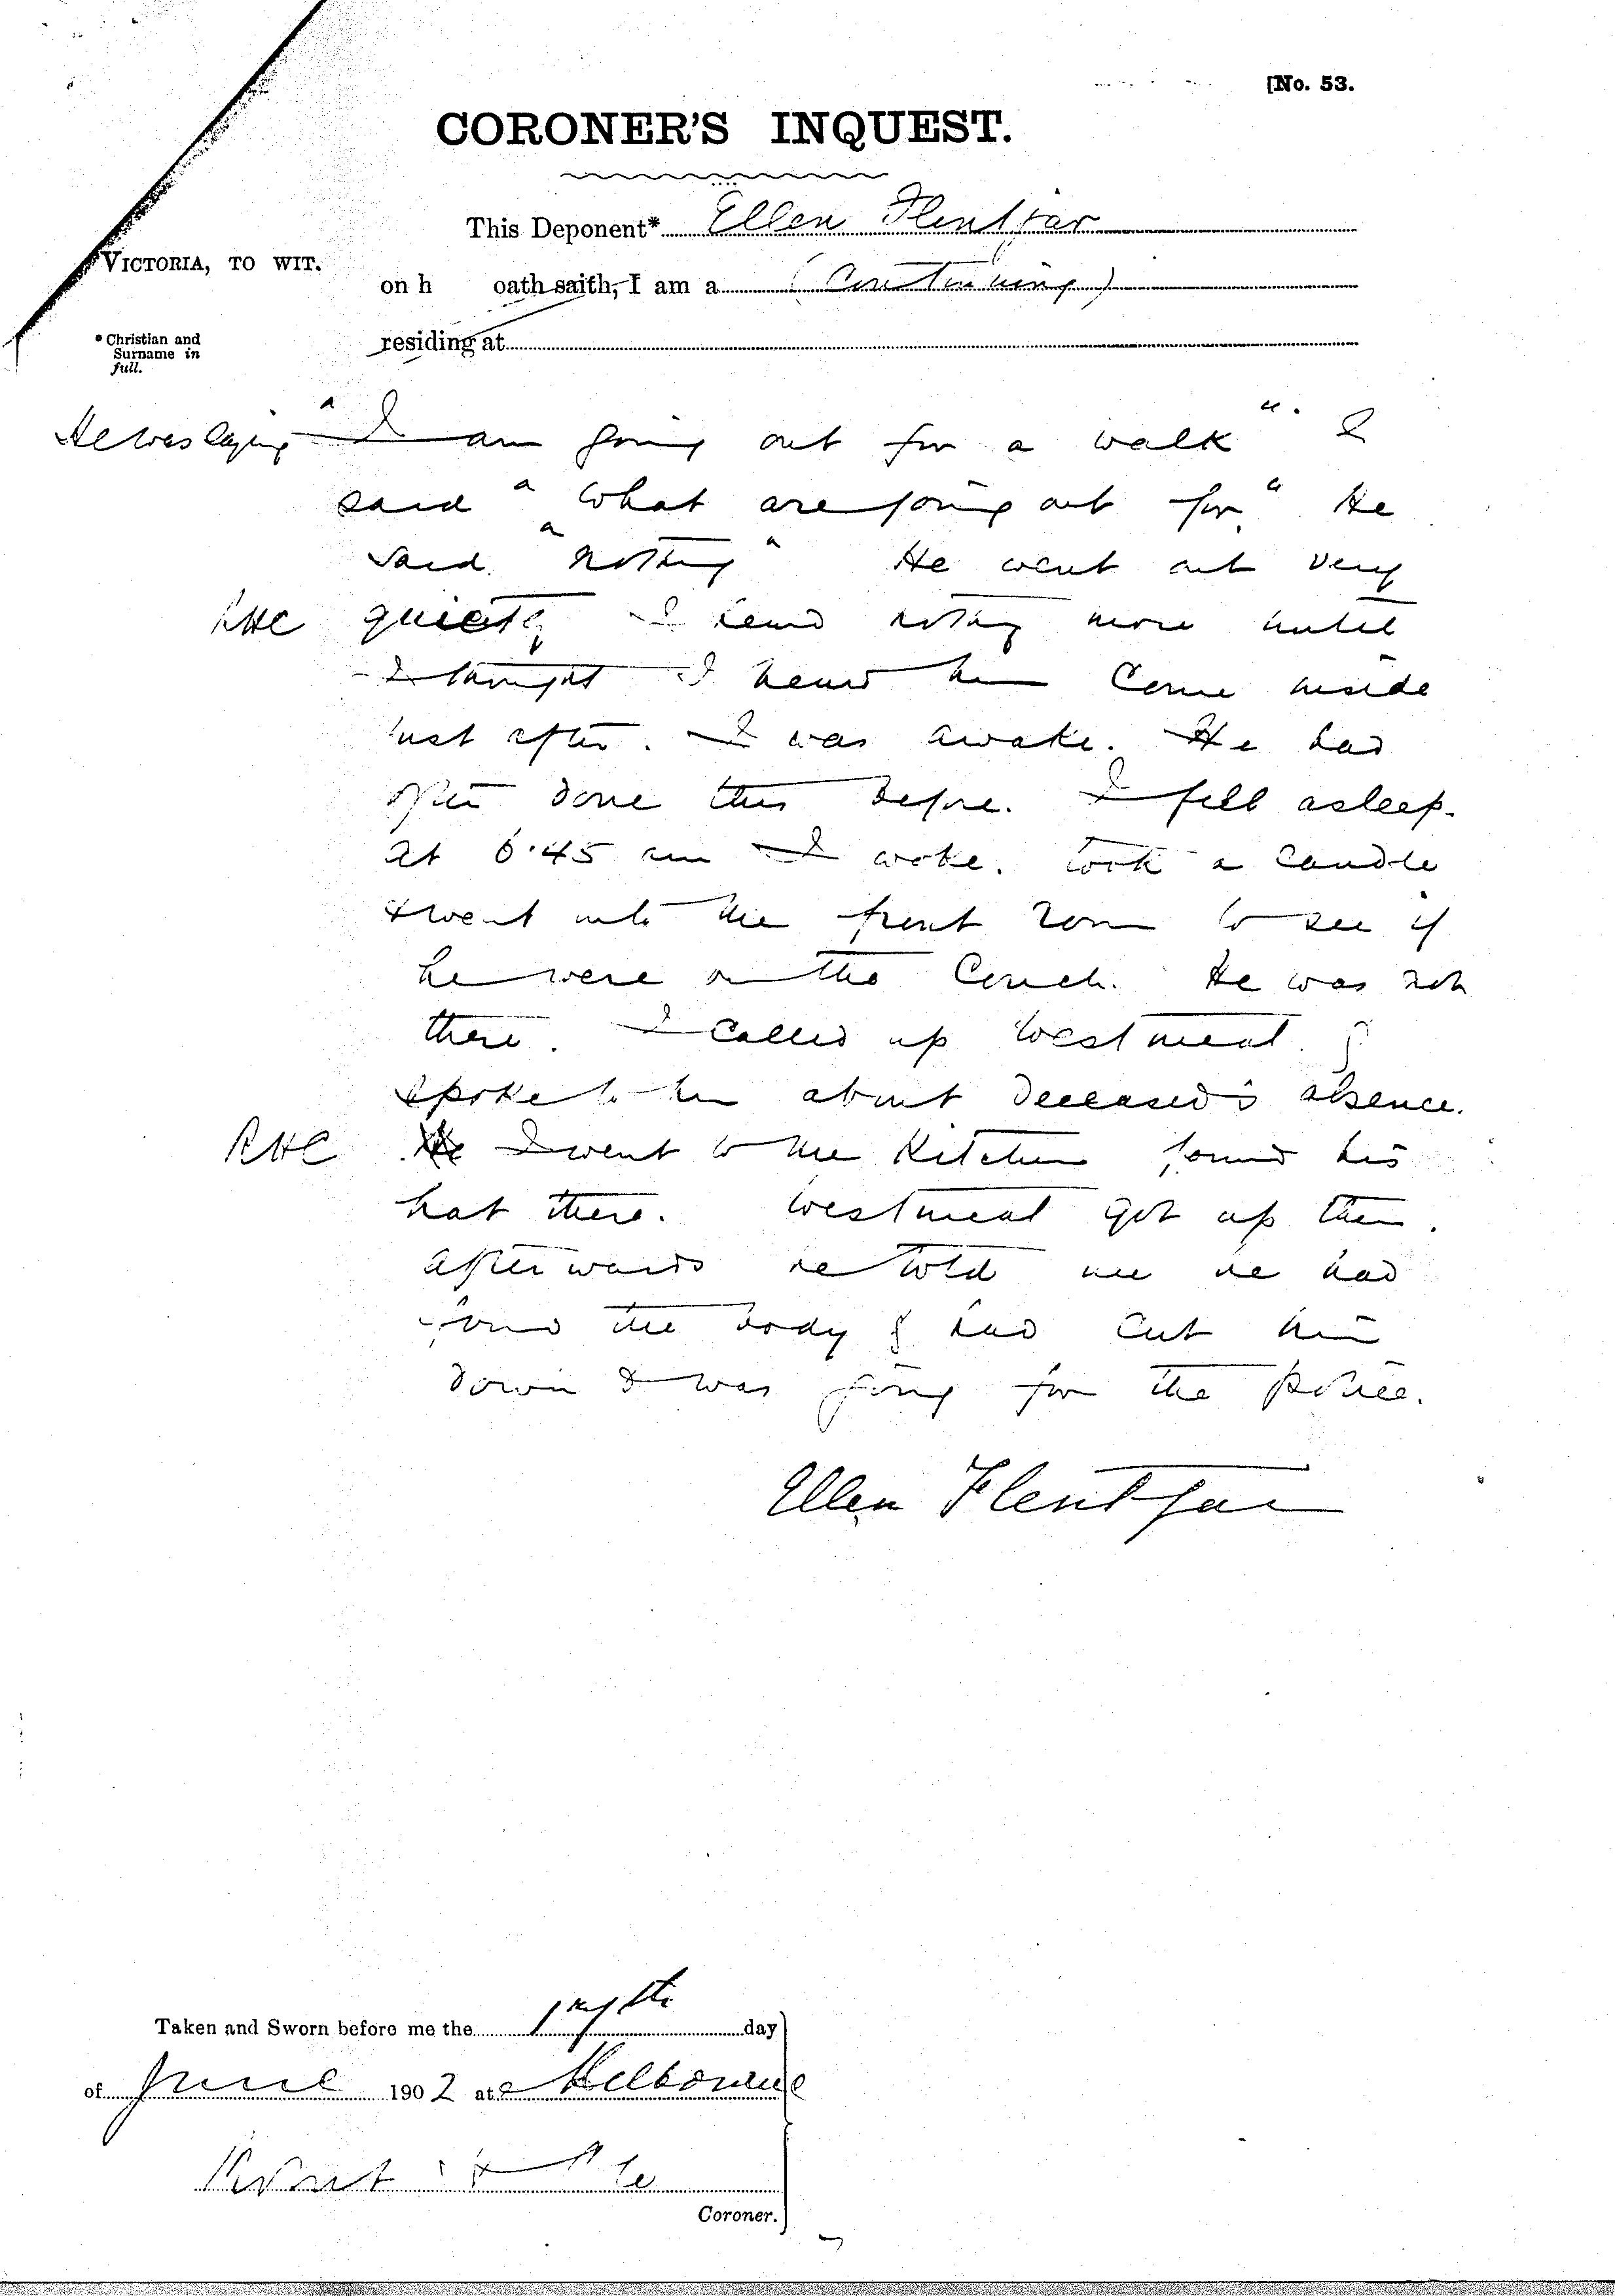 [No. 53.
CORONER'S INQUEST.
This Deponent* Ellen Flentjar
VICTORIA, TO WIT.
on h oath saith, I am a (Continuing)
residing at
* Christian and
Surname in
full.
He was saying "I am going out for a walk". I
said "What are going out for" He
said "Nothing" He went out very
RHC quietly I heard nothing more until
I thought I heard him come inside
just after. I was awake. He had
often done this before. I fell asleep.
At 6.45 am I woke. took a candle
& went into the front room to see if
he were on the Couch. He was not
there. I called up Westmeat. &
spoke to him about deceased's absence.
RHC He I went to the Kitchen found his
hat there. Westmeat got up then.
afterwards he told me he had
found the body & had cut him
down & was going for the Police.
Ellen Flentjar
Taken and Sworn before me the day
of June 1902 at Melbourne
Coroner.